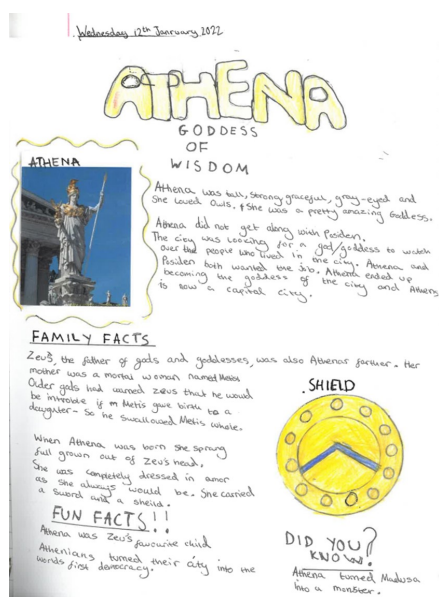 Wednesday 12th Janruary 2022
ATHENA
GODDESS
OF
WISDOM
ATHENA
Athena was tall, strong, graceful, gray-eyed and
She loved Owls. She was a pretty amazing Goddess.
Athena did not get along with Posiden.
The city was looking for a god/goddess to watch
over the people who lived in the city. Athena and
Posiden both wanted the job. Athena ended up
becoming the goddess of the city and Athens
is now a capital city.
FAMILY FACTS
Zeus, the father of gods and goddesses, was also Athenas farther. Her
mother was a mortal woman named Metis
Older gods had warned zeus that he would
be in trouble if m Metis gave birth to a
daughter - So he swallowed Metis whole.
When Athena was born she sprang
full grown out of Zeus's head,
She was completely dressed in amor
as she always would be. She carried
a sword and a sheild.
SHIELD
FUN FACTS!!
Athena was Zeus's favourite child
Athenians turned their city into the
worlds first democracy.
DID YOU
KNOW?
Athena turned Madusa
into a monster.